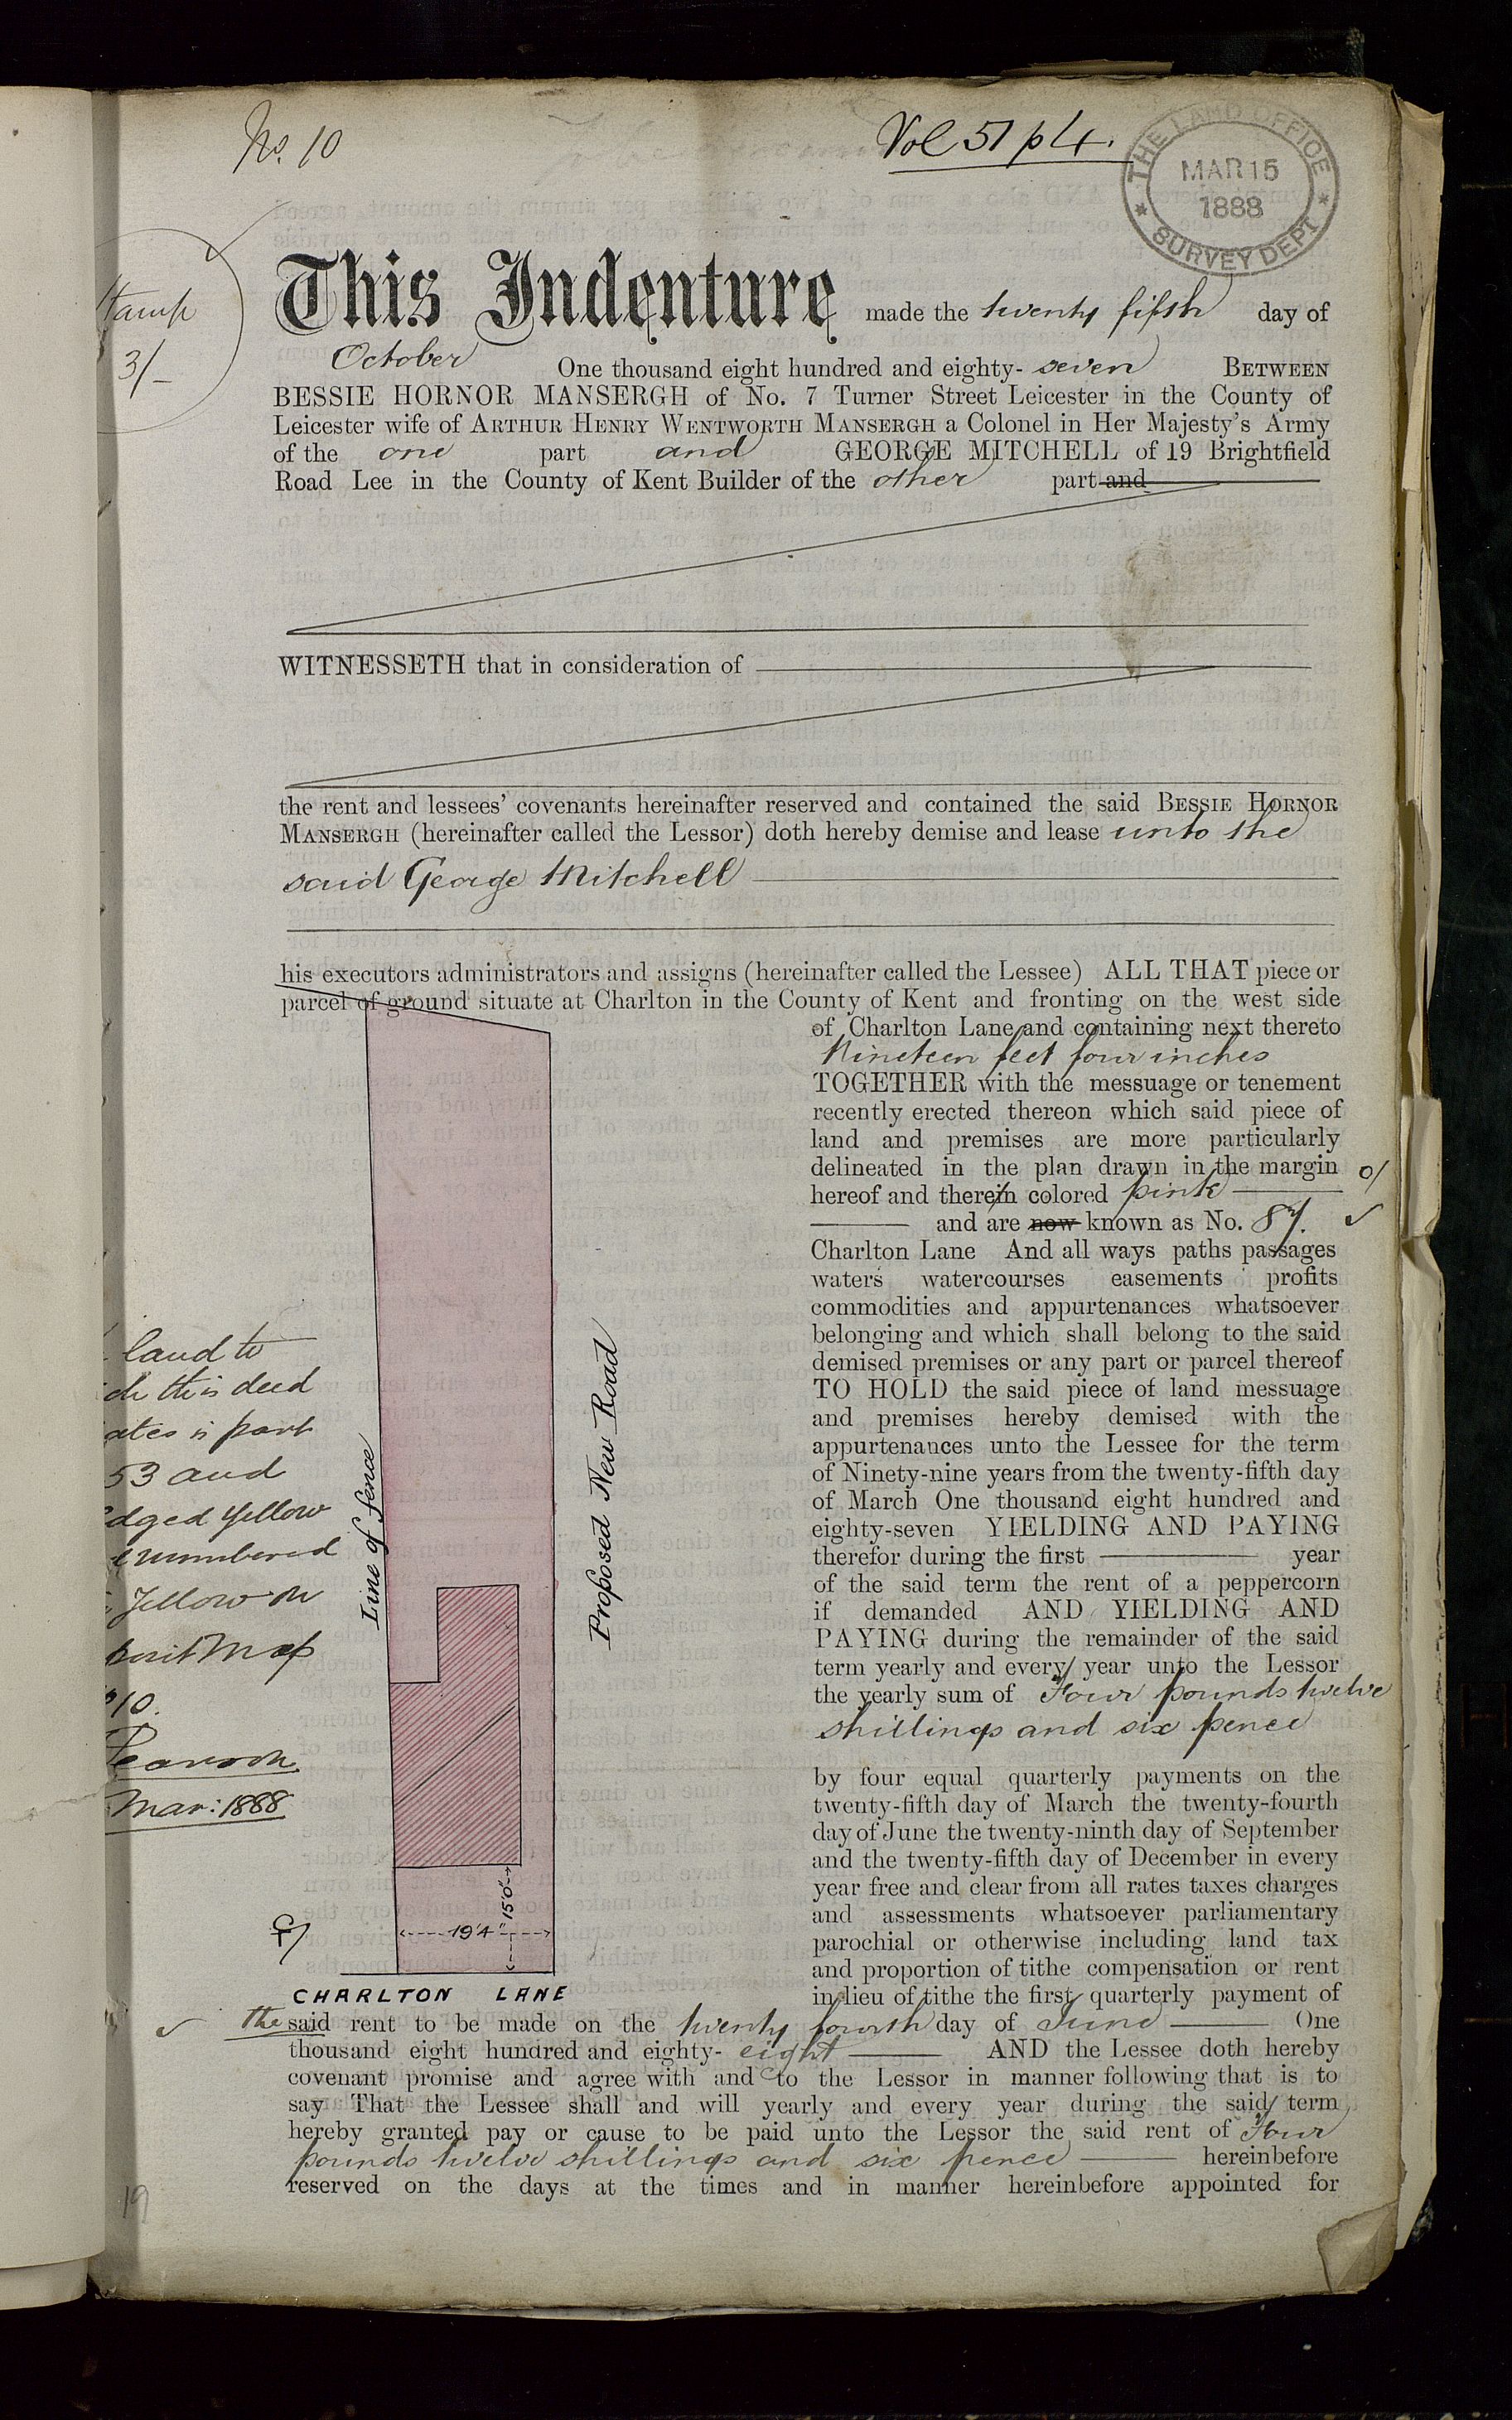 No. 10
Vol 51 p 4.
THE LAND OFFICE
MAR 15
1888
* SURVEY DEPT *
3/-
This Indenture made the twenty fifth day of
October One thousand eight hundred and eighty- seven BETWEEN
BESSIE HORNOR MANSERGH of No. 7 Turner Street Leicester in the County of
Leicester wife of ARTHUR HENRY WENTWORTH MANSERGH a Colonel in Her Majesty's Army
of the one part and GEORGE MITCHELL of 19 Brightfield
Road Lee in the County of Kent Builder of the other part and
WITNESSETH that in consideration of
the rent and lessees' covenants hereinafter reserved and contained the said BESSIE HORNOR
MANSERGH (hereinafter called the Lessor) doth hereby demise and lease unto the
said George Mitchell
his executors administrators and assigns (hereinafter called the Lessee) ALL THAT piece or
parcel of ground situate at Charlton in the County of Kent and fronting on the west side
of Charlton Lane and containing next thereto
Nineteen feet four inches
TOGETHER with the messuage or tenement
recently erected thereon which said piece of
land and premises are more particularly
delineated in the plan drawn in the margin
hereof and therein colored pink
and are now known as No. 87.
Charlton Lane And all ways paths passages
waters watercourses easements profits
commodities and appurtenances whatsoever
belonging and which shall belong to the said
demised premises or any part or parcel thereof
TO HOLD the said piece of land messuage
and premises hereby demised with the
appurtenances unto the Lessee for the term
of Ninety-nine years from the twenty-fifth day
of March One thousand eight hundred and
eighty-seven YIELDING AND PAYING
therefor during the first year
of the said term the rent of a peppercorn
if demanded AND YIELDING AND
PAYING during the remainder of the said
term yearly and every year unto the Lessor
the yearly sum of Four pounds twelve
shillings and six pence
by four equal quarterly payments on the
twenty-fifth day of March the twenty-fourth
day of June the twenty-ninth day of September
and the twenty-fifth day of December in every
year free and clear from all rates taxes charges
and assessments whatsoever parliamentary
parochial or otherwise including land tax
and proportion of tithe compensation or rent
in lieu of tithe the first quarterly payment of
the said rent to be made on the twenty fourth day of June One
thousand eight hundred and eighty- eight AND the Lessee doth hereby
covenant promise and agree with and to the Lessor in manner following that is to
say That the Lessee shall and will yearly and every year during the said term
hereby granted pay or cause to be paid unto the Lessor the said rent of Four
pounds twelve shillings and six pence hereinbefore
reserved on the days at the times and in manner hereinbefore appointed for
land to
this deed
is part
53 and
Yellow
numbered
Yellow on
Map
10.
Mar: 1888
Line of fence
Proposed New Road
15'0"
19'4"
CHARLTON LANE
19